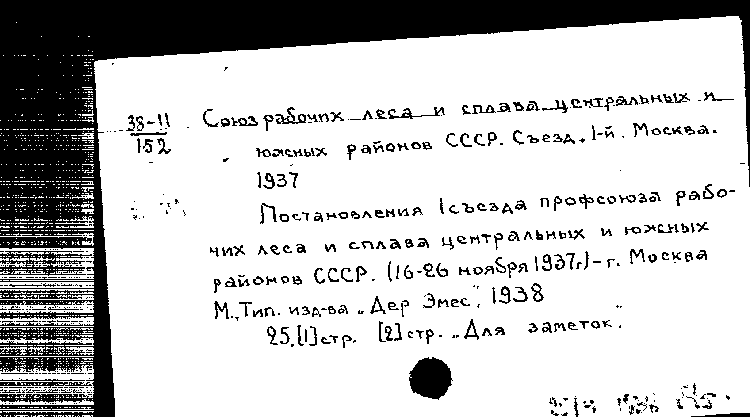 38-11 Союз рабочих леса и сплава центральных и
152 южных районов СССР. Съезд. 1-й. Москва.
1937
Постановления I съезда профсоюза рабо-
чих леса и сплава центральных и южных
районов СССР. (16-26 ноября 1937г.) - г. Москва
М., Тип. изд-ва „Дер Эмес", 1938
25, [1] стр. [2] стр. „Для заметок".